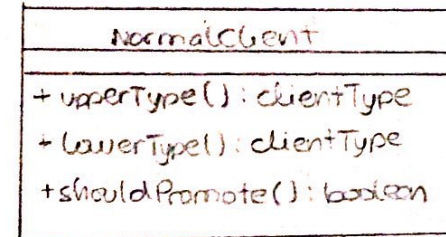 NormalClient
+ upperType() : clientType
+ lowerType() : clientType
+ shouldPromote() : boolean